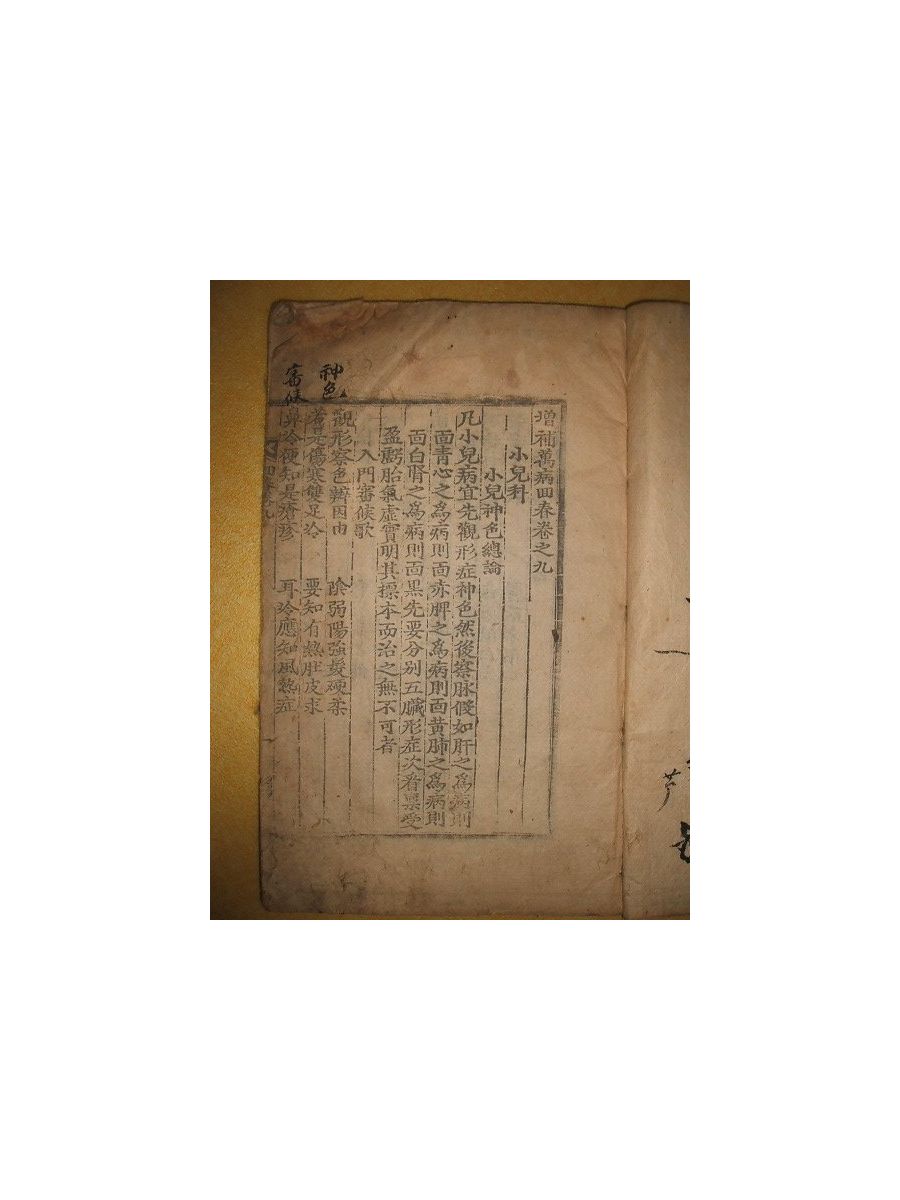 增補萬病回春卷之九
小兒科
小兒神色總論
凡小兒病宜先觀形症神色然後察脉假如肝之爲病則
面青心之爲病則面赤脾之爲病則面黃肺之爲病則
面白腎之爲病則面黑先要分别五臟形症次看禀受
盈虧胎氣虛實明其摽本而治之無不可者
入門審候歌
觀形察色辨因由 陰弱陽強髮硬柔
若是傷寒雙足冷 要知有熱肚皮求
鼻冷便知是瘡疹 耳冷應知風熱症
神色
審候